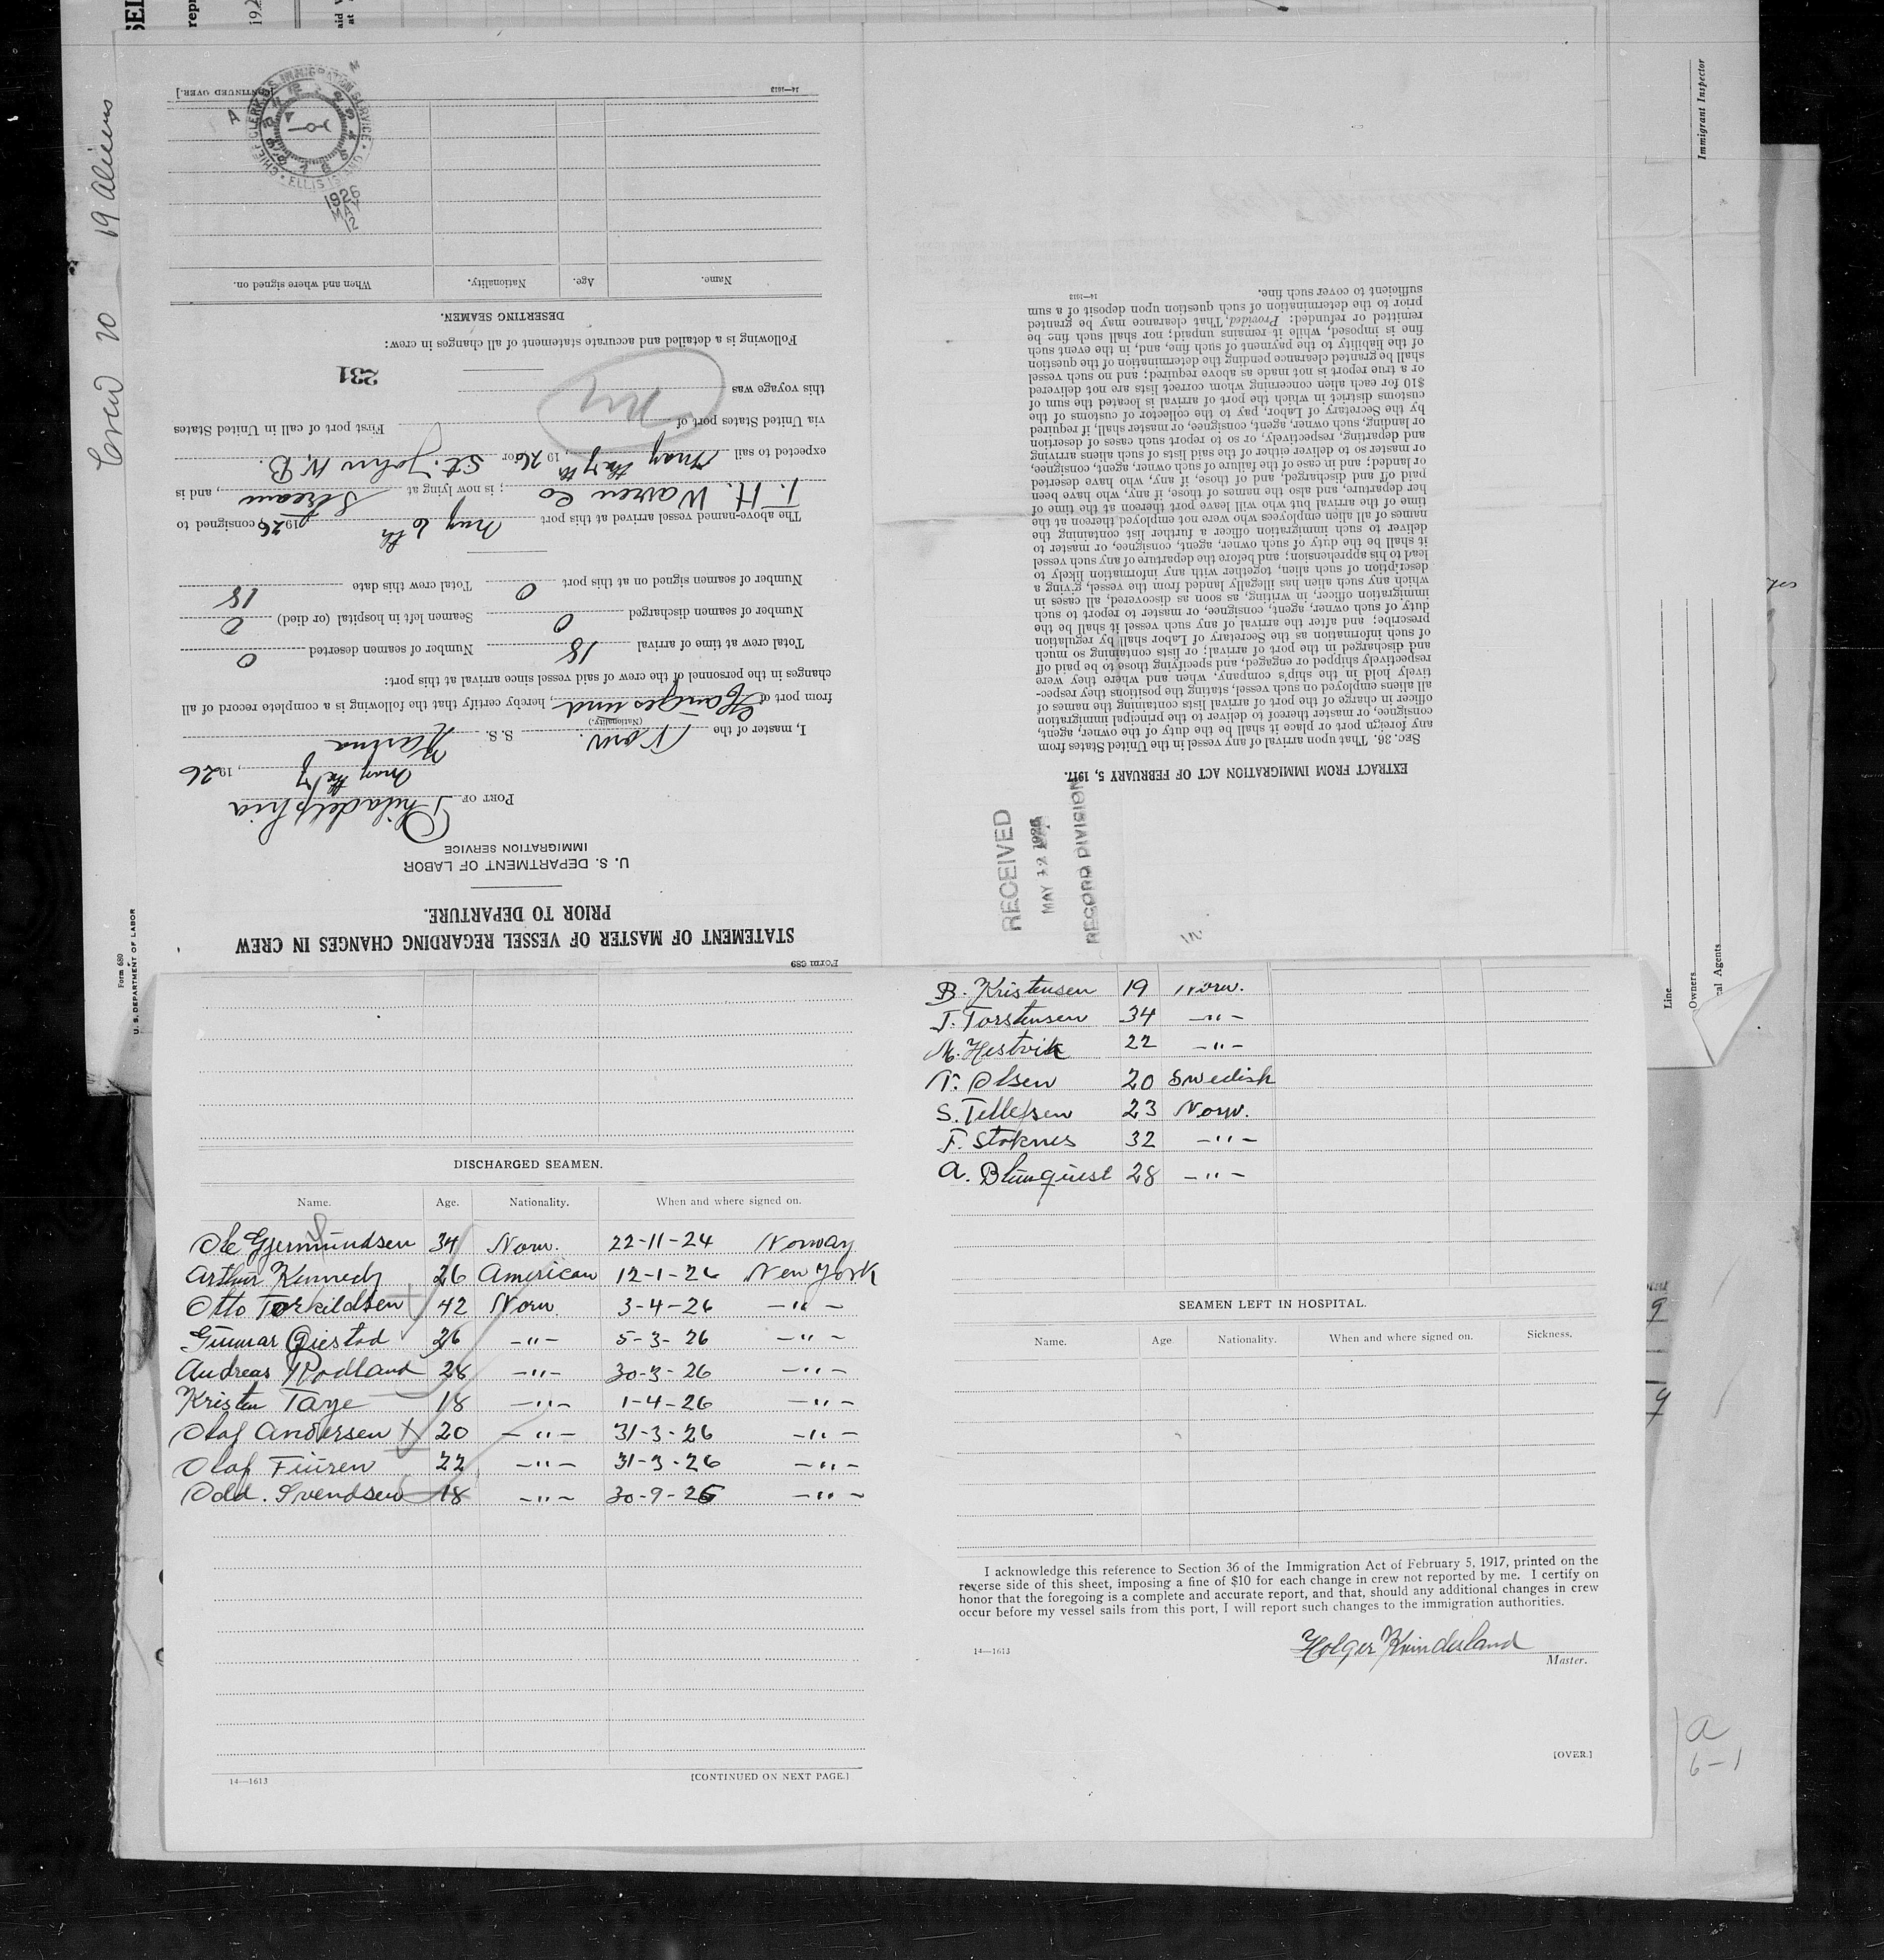 SEL
repr
192
aid V
at
Crew 20 19 aliens
Form 680
U. S. DEPARTMENT OF LABOR
Form 689
STATEMENT OF MASTER OF VESSEL REGARDING CHANGES IN CREW
PRIOR TO DEPARTURE.
U. S. DEPARTMENT OF LABOR
IMMIGRATION SERVICE
PORT OF Philadelphia
May the 7, 1926
I, master of the Norw. S. S. Karina
(Nationality.)
from port of Haugesund, hereby certify that the following is a complete record of all
changes in the personnel of the crew of said vessel since arrival at this port:
Total crew at time of arrival 18 Number of seamen deserted 0
Number of seamen discharged 0 Seamen left in hospital (or died) 0
Number of seamen signed on at this port 0 Total crew this date 18
The above-named vessel arrived at this port May 6th 1926, consigned to
T. H. Warren Co; is now lying at Stream, and is
expected to sail May the 7th, 1926 for St. John N. B.
via United States port of First port of call in United States
this voyage was
231
Following is a detailed and accurate statement of all changes in crew:
DESERTING SEAMEN.
Name. Age. Nationality. When and where signed on.
14—1613 [CONTINUED OVER.]
CHIEF CLERK U.S. IMMIGRATION SERVICE
ELLIS IS
1926
MAY
12
A
M
EXTRACT FROM IMMIGRATION ACT OF FEBRUARY 5, 1917.
SEC. 36. That upon arrival of any vessel in the United States from
any foreign port or place it shall be the duty of the owner, agent,
consignee, or master thereof to deliver to the principal immigration
officer in charge of the port of arrival lists containing the names of
all aliens employed on such vessel, stating the positions they respec-
tively hold in the ship's company, when and where they were
respectively shipped or engaged, and specifying those to be paid off
and discharged in the port of arrival; or lists containing so much
of such information as the Secretary of Labor shall by regulation
prescribe; and after the arrival of any such vessel it shall be the
duty of such owner, agent, consignee, or master to report to such
immigration officer, in writing, as soon as discovered, all cases in
which any such alien has illegally landed from the vessel, giving a
description of such alien, together with any information likely to
lead to his apprehension; and before the departure of any such vessel
it shall be the duty of such owner, agent, consignee, or master to
deliver to such immigration officer a further list containing the
names of all alien employees who were not employed thereon at the
time of the arrival but who will leave port thereon at the time of
her departure, and also the names of those, if any, who have been
paid off and discharged, and of those, if any, who have deserted
or landed; and in case of the failure of such owner, agent, consignee,
or master so to deliver either of the said lists of such aliens arriving
and departing, respectively, or so to report such cases of desertion
or landing, such owner, agent, consignee, or master shall, if required
by the Secretary of Labor, pay to the collector of customs of the
customs district in which the port of arrival is located the sum of
$10 for each alien concerning whom correct lists are not delivered
or a true report is not made as above required; and no such vessel
shall be granted clearance pending the determination of the question
of the liability to the payment of such fine, and, in the event such
fine is imposed, while it remains unpaid; nor shall such fine be
remitted or refunded: Provided, That clearance may be granted
prior to the determination of such question upon deposit of a sum
sufficient to cover such fine.
14—1613
RECEIVED
MAY 12 1926
RECORD DIVISION
Immigrant Inspector
Line
Owners
cal Agents
DISCHARGED SEAMEN.
Name. Age. Nationality. When and where signed on.
Ole Gjermundsen 34 Norw. 22-11-24 Norway
Arthur Kennedy 26 American 12-1-26 New York
Otto Torkildsen 42 Norw. 3-4-26 -"-
Gunnar Qiestad 26 -"- 5-3-26 -"-
Andreas Rodland 28 -"- 30-3-26 -"-
Kristen Taye 18 -"- 1-4-26 -"-
Olaf Andersen 20 -"- 31-3-26 -"-
Olaf Furen 22 -"- 31-3-26 -"-
Odd. Svendsen 18 -"- 30-9-25 -"-
14—1613 [CONTINUED ON NEXT PAGE.]
B. Kristensen 19 Norw.
J. Torstensen 34 -"-
M. Hestvik 22 -"-
T. Olsen 20 Swedish
S. Tellefsen 23 Norw.
F. Stoknes 32 -"-
A. Blumquist 28 -"-
SEAMEN LEFT IN HOSPITAL.
Name. Age Nationality. When and where signed on. Sickness.
I acknowledge this reference to Section 36 of the Immigration Act of February 5, 1917, printed on the
reverse side of this sheet, imposing a fine of $10 for each change in crew not reported by me. I certify on
honor that the foregoing is a complete and accurate report, and that, should any additional changes in crew
occur before my vessel sails from this port, I will report such changes to the immigration authorities.
14—1613
Holger Kvindesland
Master.
[OVER.]
a
6-1